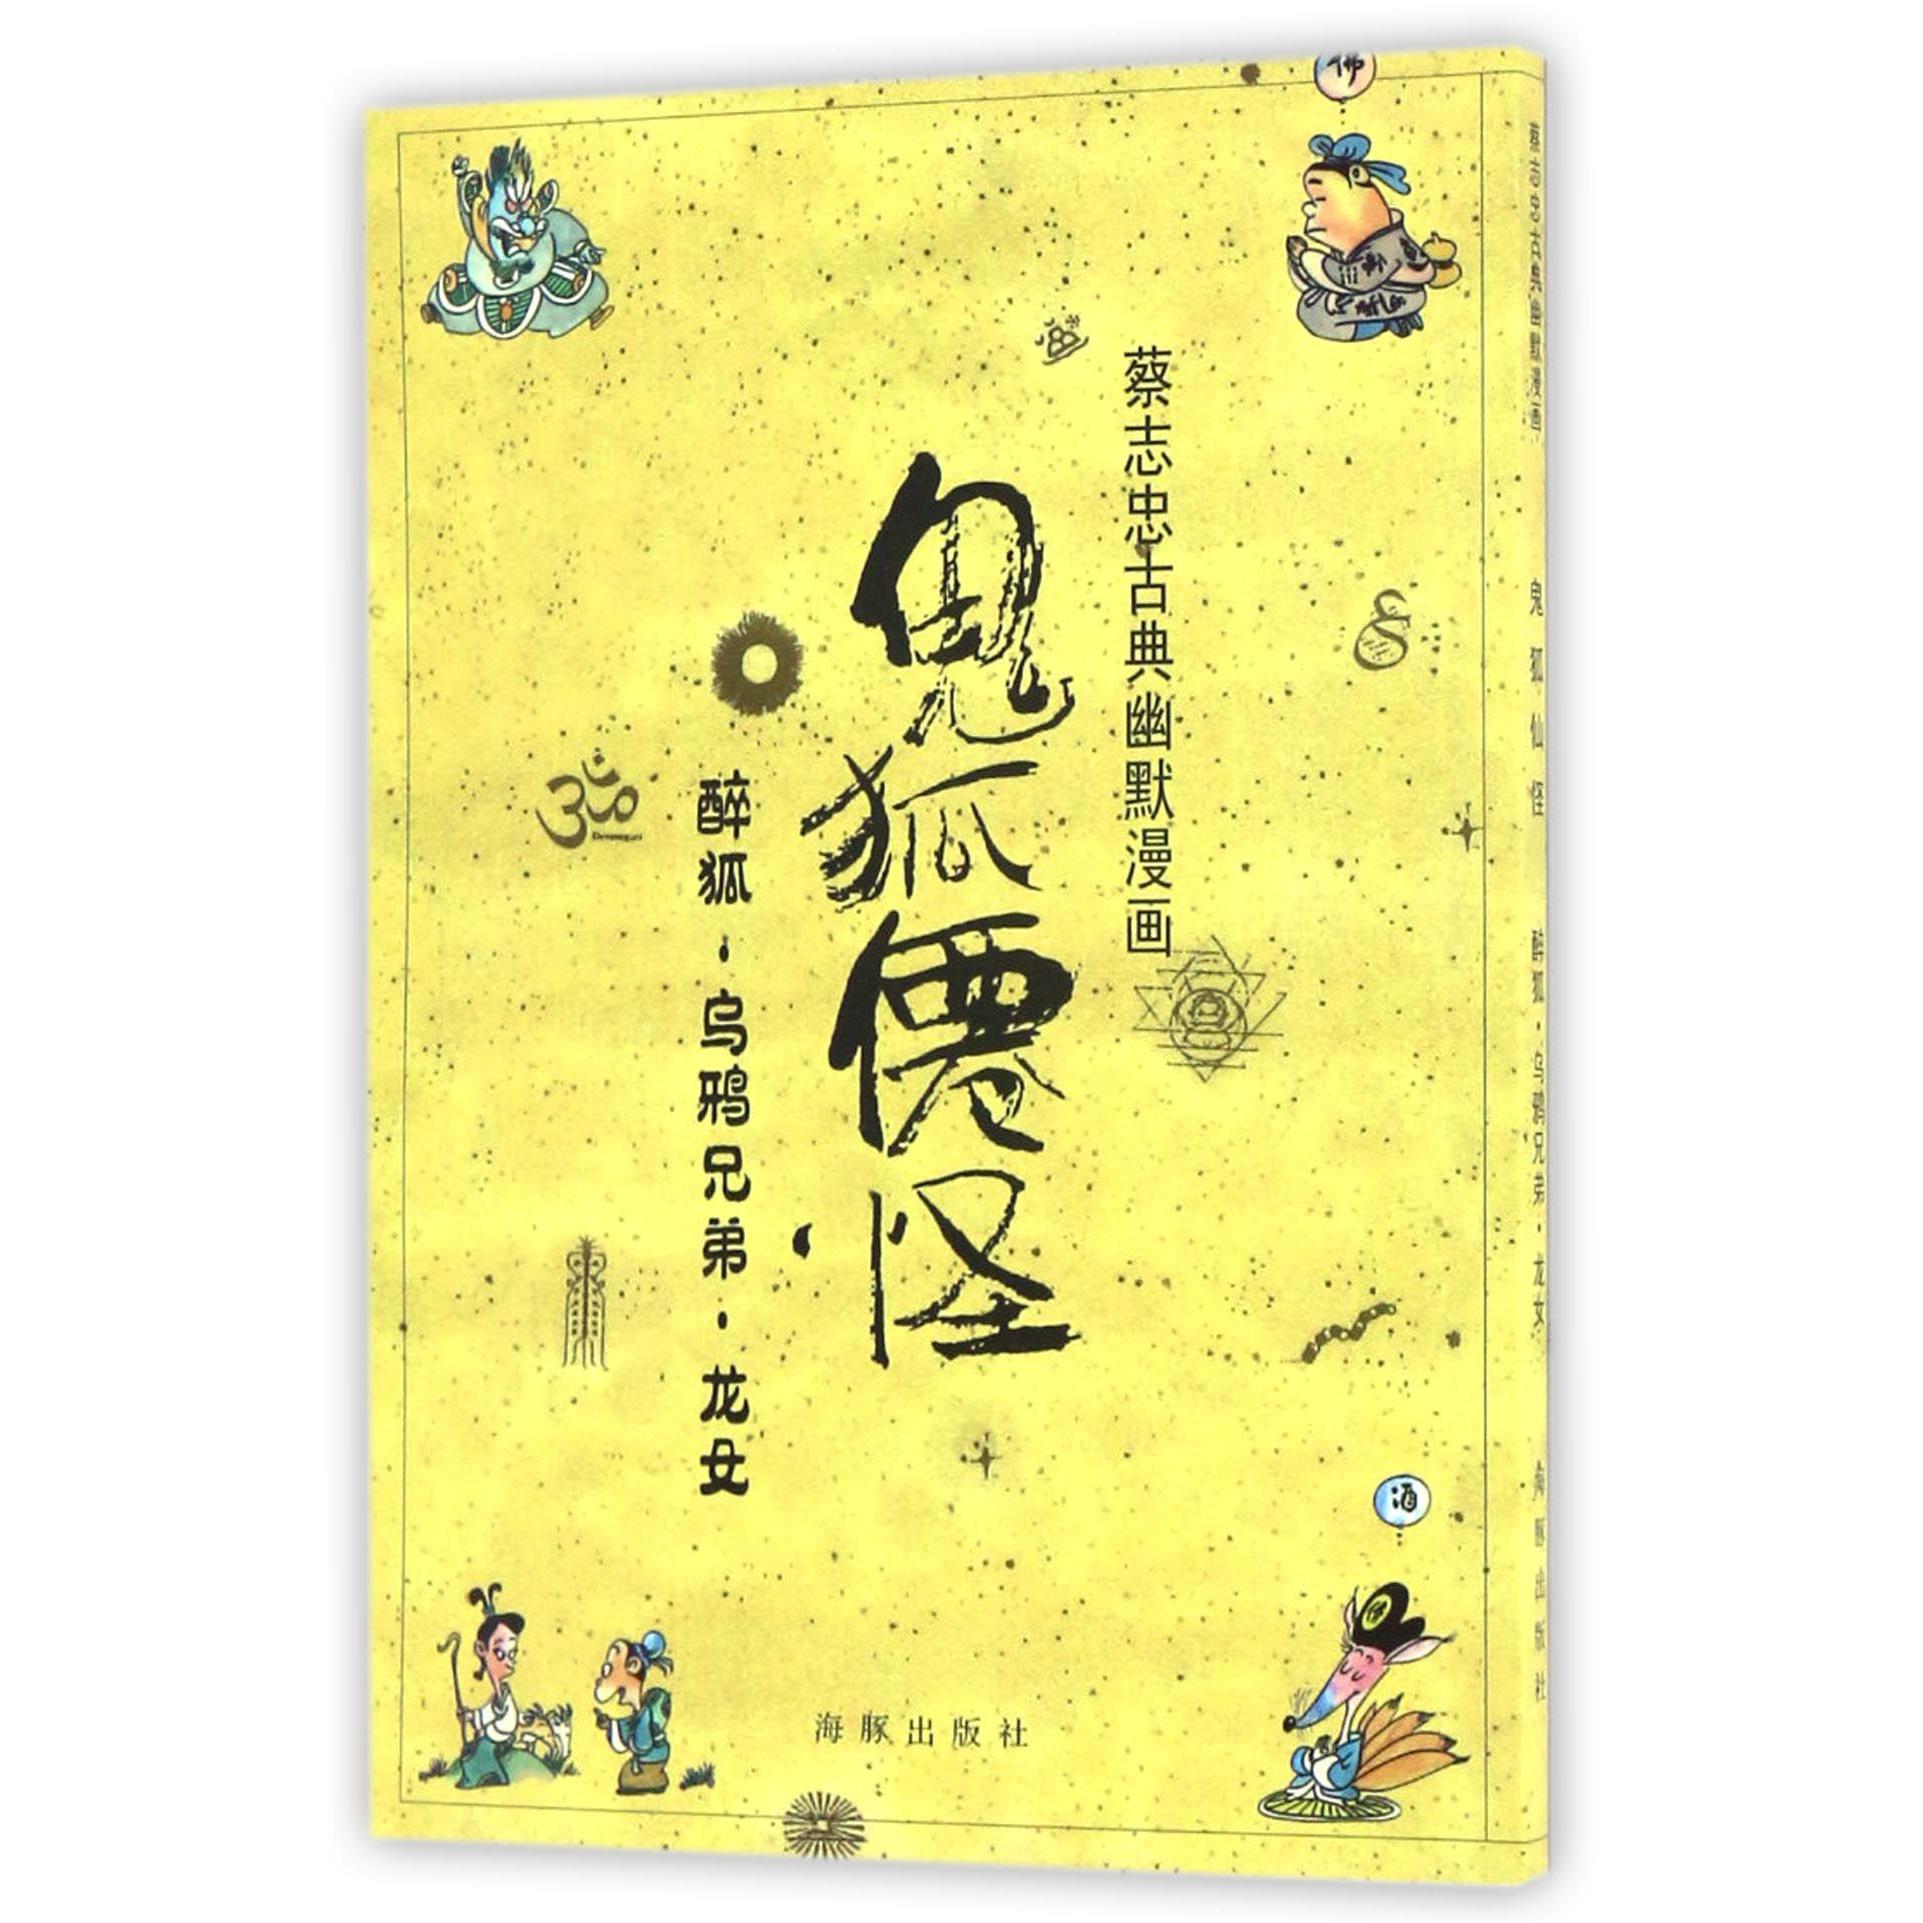 蔡志忠古典幽默漫画
鬼狐僊怪
醉狐·乌鸦兄弟·龙女
海豚出版社
佛
酒
佛
蔡志忠古典幽默漫画 鬼狐仙怪 醉狐·乌鸦兄弟·龙女 海豚出版社
Devanagari